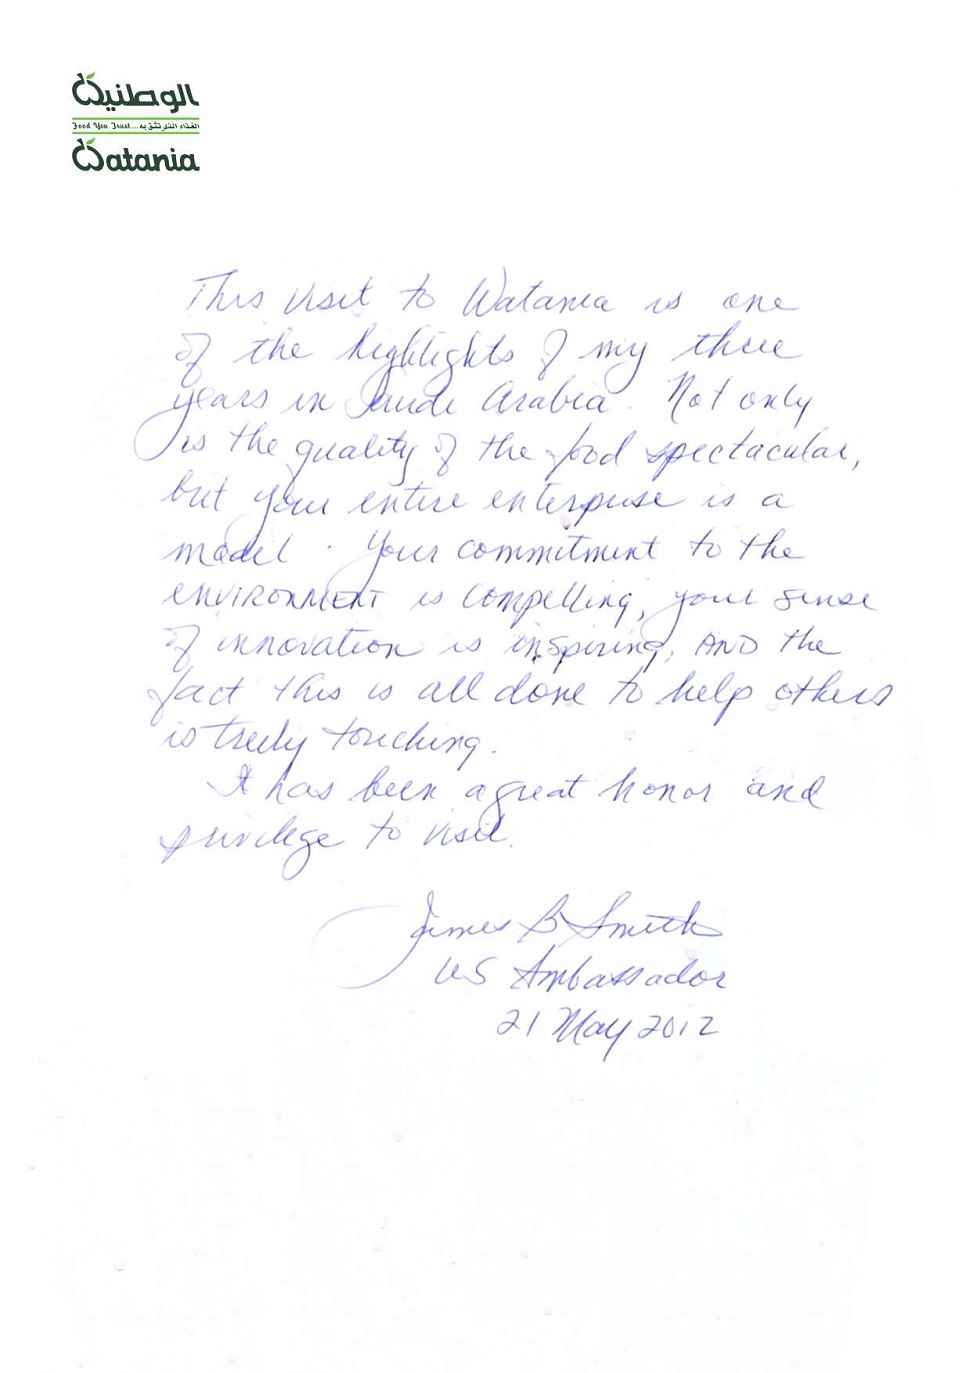 الوطنية
Food You Trust... الغذاء الذي تثق به
Watania
This visit to Watania is one
of the highlights of my three
years in Saudi Arabia. Not only
is the quality of the food spectacular,
but your entire enterprise is a
model. Your commitment to the
ENVIRONMENT is compelling, your sense
of innovation is inspiring, AND the
fact this is all done to help others
is truly touching.
It has been a great honor and
privilege to visit.
James B Smith
US Ambassador
21 May 2012